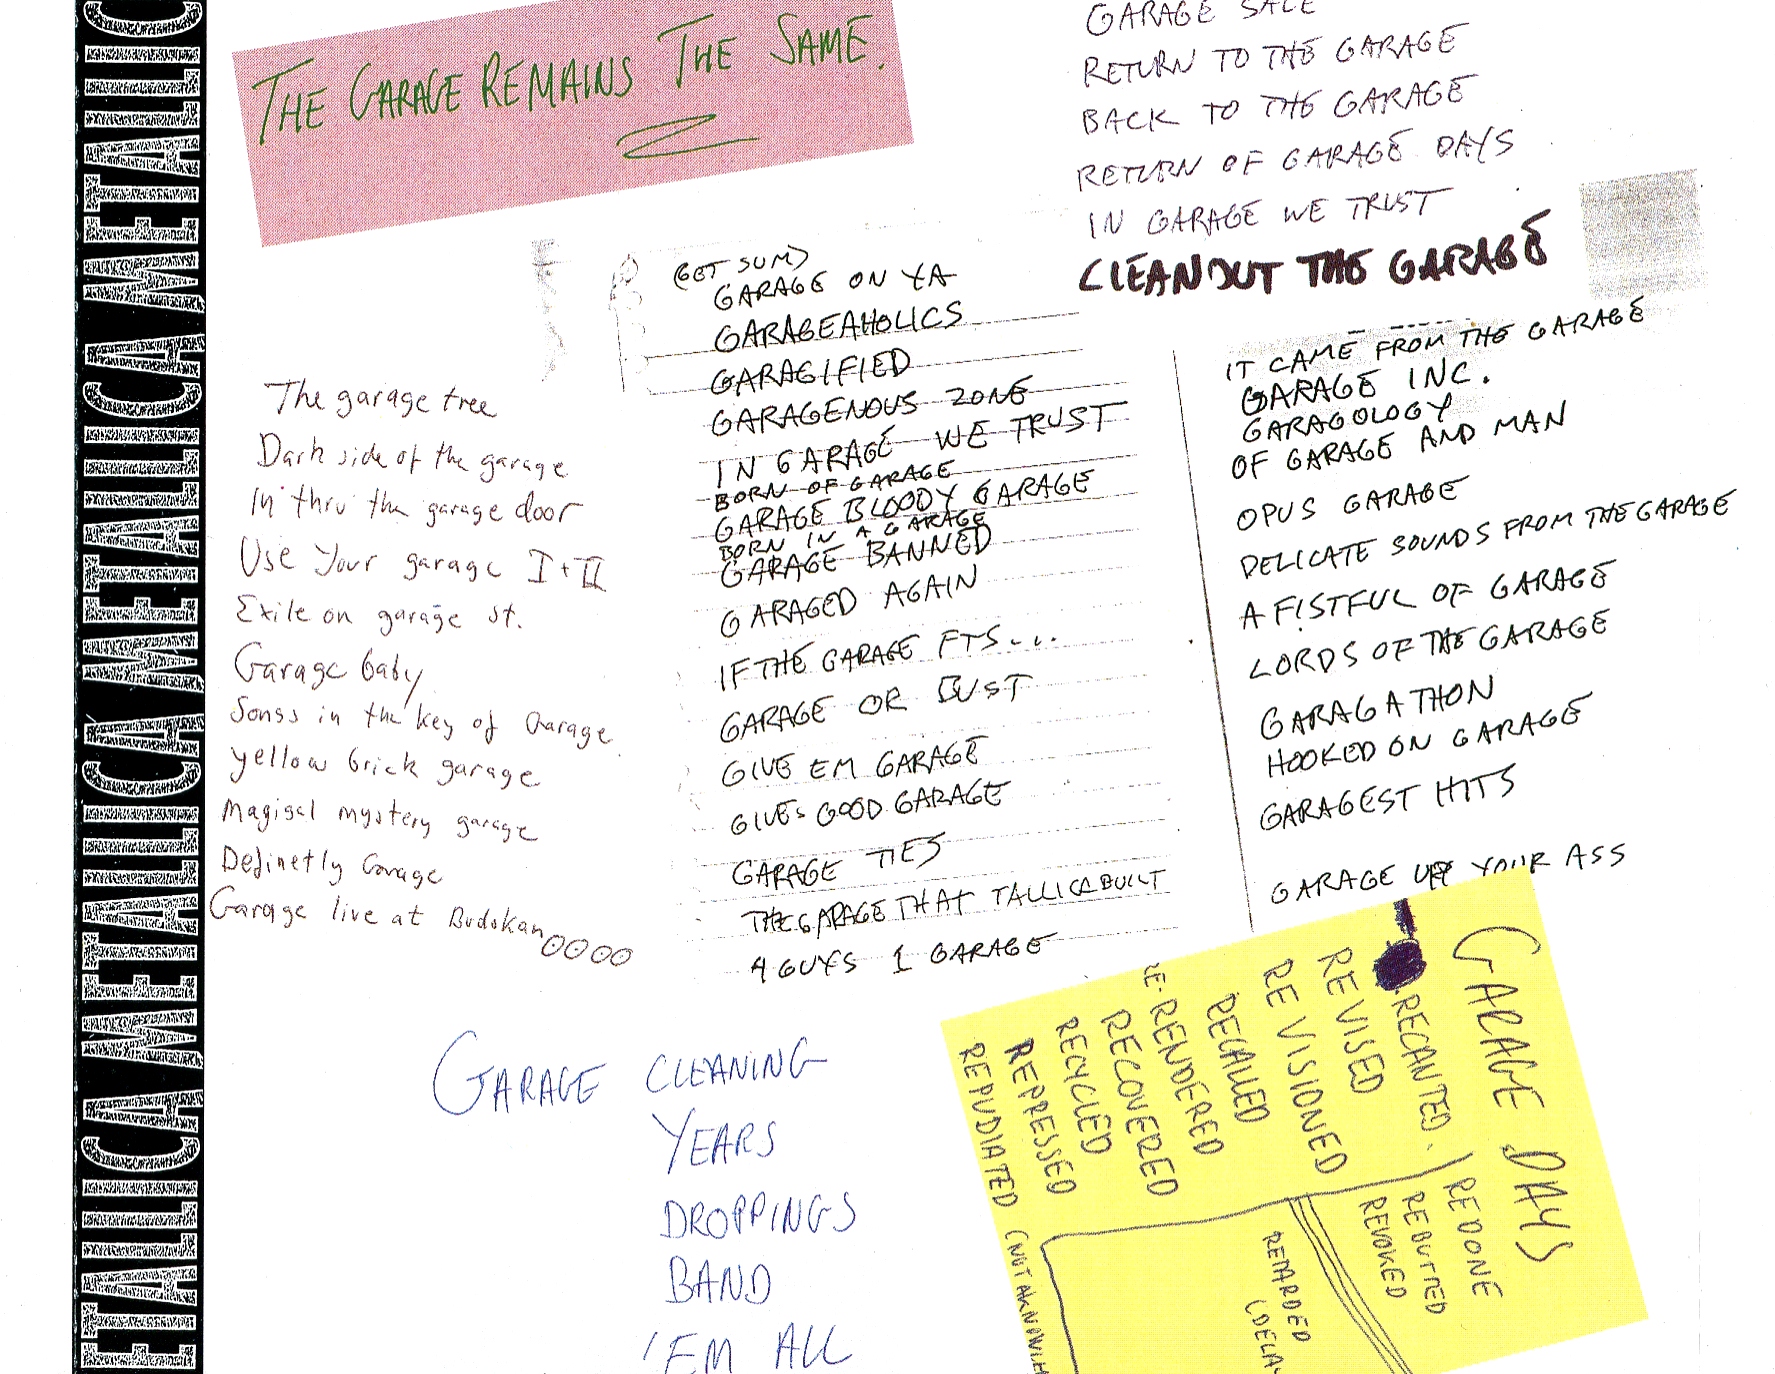 METALLICA METALLICA METALLICA METALLICA METALLIC
THE GARAGE REMAINS THE SAME.
GARAGE SALE
RETURN TO THE GARAGE
BACK TO THE GARAGE
RETURN OF GARAGE DAYS
IN GARAGE WE TRUST
CLEANOUT THE GARAGE
The garage tree
Dark side of the garage
In thru the garage door
Use Your garage I + II
Exile on garage st.
Garage baby
Songs in the key of Garage
yellow brick garage
Magical mystery garage
Definetly Garage
Garage live at Budokan
(GET SUM)
GARAGE ON YA
GARAGEAHOLICS
GARAGIFIED
GARAGENOUS ZONE
IN GARAGE WE TRUST
BORN OF GARAGE
GARAGE BLOODY GARAGE
BORN IN A GARAGE
GARAGE BANNED
GARAGED AGAIN
IF THE GARAGE FTS...
GARAGE OR BUST
GIVE EM GARAGE
GIVES GOOD GARAGE
GARAGE TIES
THE GARAGE THAT TALLICA BUILT
4 GUYS 1 GARAGE
IT CAME FROM THE GARAGE
GARAGE INC.
GARAGOLOGY
OF GARAGE AND MAN
OPUS GARAGE
DELICATE SOUNDS FROM THE GARAGE
A FISTFUL OF GARAGE
LORDS OF THE GARAGE
GARAGATHON
HOOKED ON GARAGE
GARAGEST HITS
GARAGE UP YOUR ASS
GARAGE CLEANING
YEARS
DROPPINGS
BAND
'EM ALL
GARAGE DAYS
RECANTED.
REVISED
REVISIONED
RECALLED
RE-RENDERED
RECOVERED
RECYCLED
REPRESSED
REPUDIATED (NOT
REDONE
REBUTTED
REVOKED
RETARDED
(DELAY